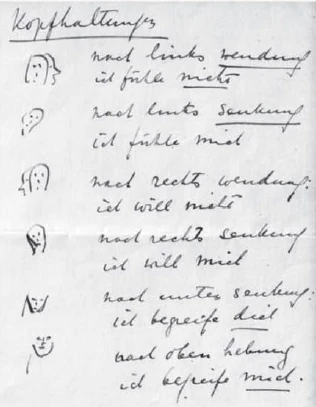 Kopfhaltungen
nach links wendung
ich fühle nichts
nach links senkung
ich fühle mich
nach rechts wendung:
ich will nichts
nach rechts senkung
ich will mich
nach unten senkung:
ich begreife dich
nach oben hebung
ich begreife mich.